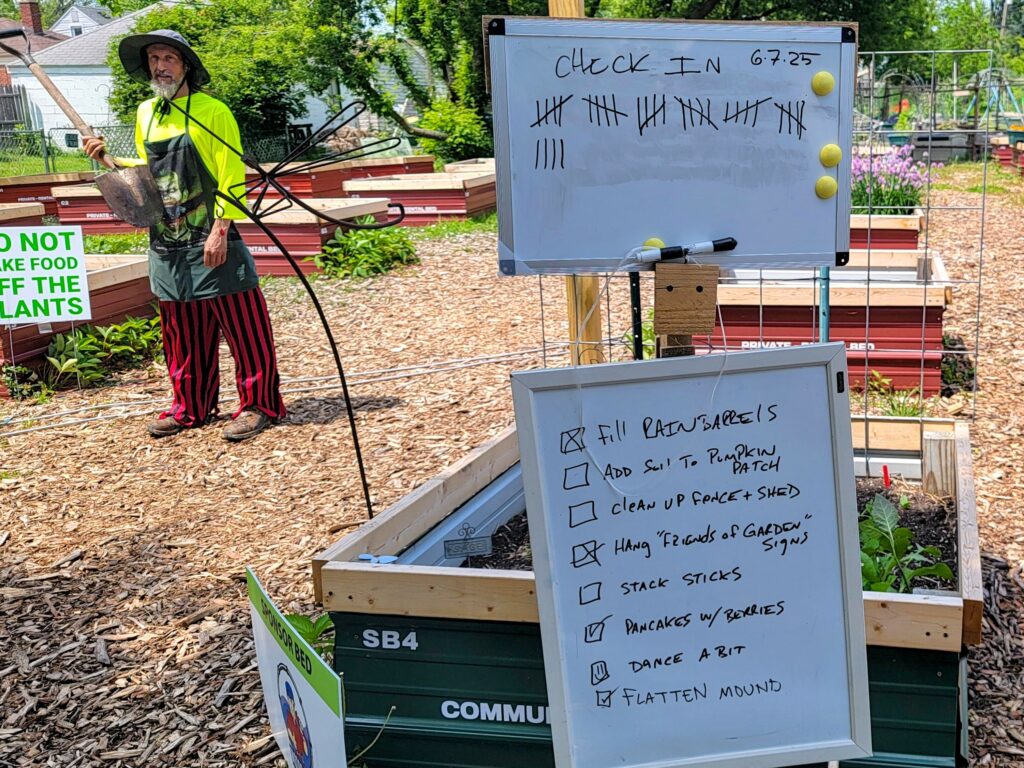 CHECK IN 6.7.25
DO NOT
TAKE FOOD
OFF THE
PLANTS
PRIVATE-RENTAL BED
Fill RAINBARRELS
ADD SOIL TO PUMPKIN
PATCH
CLEAN UP FENCE + SHED
HANG "FRIENDS OF GARDEN"
SIGNS
STACK STICKS
PANCAKES W/ BERRIES
DANCE A BIT
FLATTEN MOUND
SB4
COMMU
SPONSOR BED